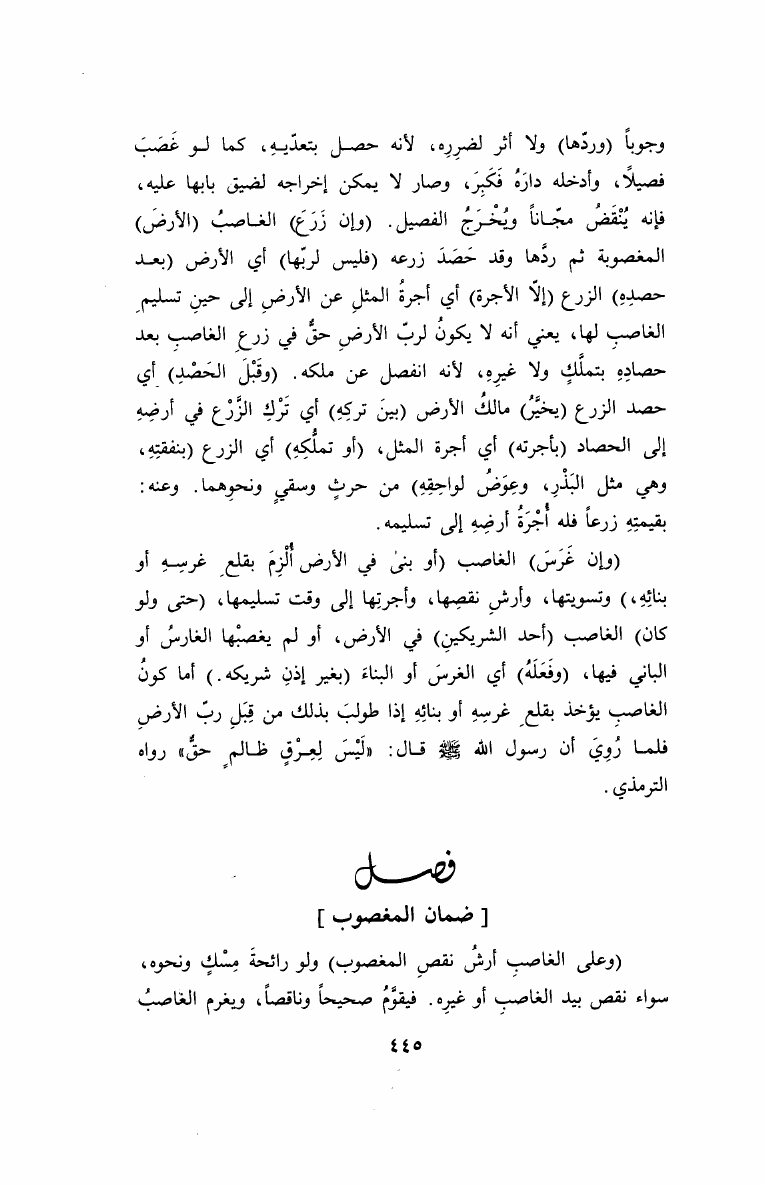 وجوباً (وردّها) ولا أثر لضررِه، لأنه حصـل بتعدّيـهِ، كما لـو غَصَبَ
فصيلًا، وأدخله دارَهُ فَكَبِرَ، وصار لا يمكن إخراجه لضيق بابها عليه،
فإنه يُنْقَضُ مجّـاناً ويُخْـرَجُ الفصيل. (وإن زَرَعَ) الغـاصبُ (الأرضَ)
المغصوبة ثم ردَّها وقد حَصَدَ زرعه (فليس لربّها) أي الأرض (بعـد
حصدِهِ) الزرع (إلّا الأجرة) أي أجرةُ المثلِ عن الأرضِ إلى حينِ تسليمِ
الغاصبِ لها، يعني أنه لا يكونُ لربّ الأرضِ حقٌّ في زرعِ الغاصبِ بعد
حصادِهِ بتملُّكٍ ولا غيرِهِ، لأنه انفصل عن ملكه. (وقَبْلَ الحَصْدِ) أي
حصد الزرع (يخيَّرُ) مالكُ الأرض (بينَ تركِهِ) أي تَرْكِ الزَّرْع في أرضِهِ
إلى الحصاد (بأجرته) أي أجرة المثل، (أو تملُّكِهِ) أي الزرع (بنفقتِهِ،
وهي مثل البَذْرِ، وعِوَضُ لواحِقِهِ) من حرثٍ وسقيٍ ونحوِهما. وعنه:
بقيمتِهِ زرعاً فله أُجْرَةُ أرضِهِ إلى تسليمه.
(وإن غَرَسَ) الغاصب (أو بنىٰ في الأرض أُلْزِمَ بقلعِ غرسِـهِ أو
بنائِهِ،) وتسويتها، وأرشِ نقصِها، وأجرتِها إلى وقت تسليمها، (حتى ولو
كان) الغاصب (أحد الشريكينِ) في الأرض، أو لم يغصبْها الغارسُ أو
الباني فيها، (وفَعَلَهُ) أي الغرسَ أو البناءَ (بغير إذنِ شريكه.) أما كونُ
الغاصبِ يؤخذ بقلعِ غرسِهِ أو بنائِهِ إذا طولبَ بذلك من قِبَلِ ربّ الأرضِ
فلمـا رُوِيَ أن رسول الله ﷺ قـال: «لَيْسَ لِعِـرْقٍ ظـالمٍ حقٌّ» رواه
الترمذي.
فصل
[ ضمان المغصوب ]
(وعلى الغاصبِ أرشُ نقصِ المغصوب) ولو رائحةَ مِسْكٍ ونحوِه،
سواء نقص بيد الغاصبِ أو غيرِه. فيقوَّمُ صحيحاً وناقصاً، ويغرم الغاصبُ
٤٤٥